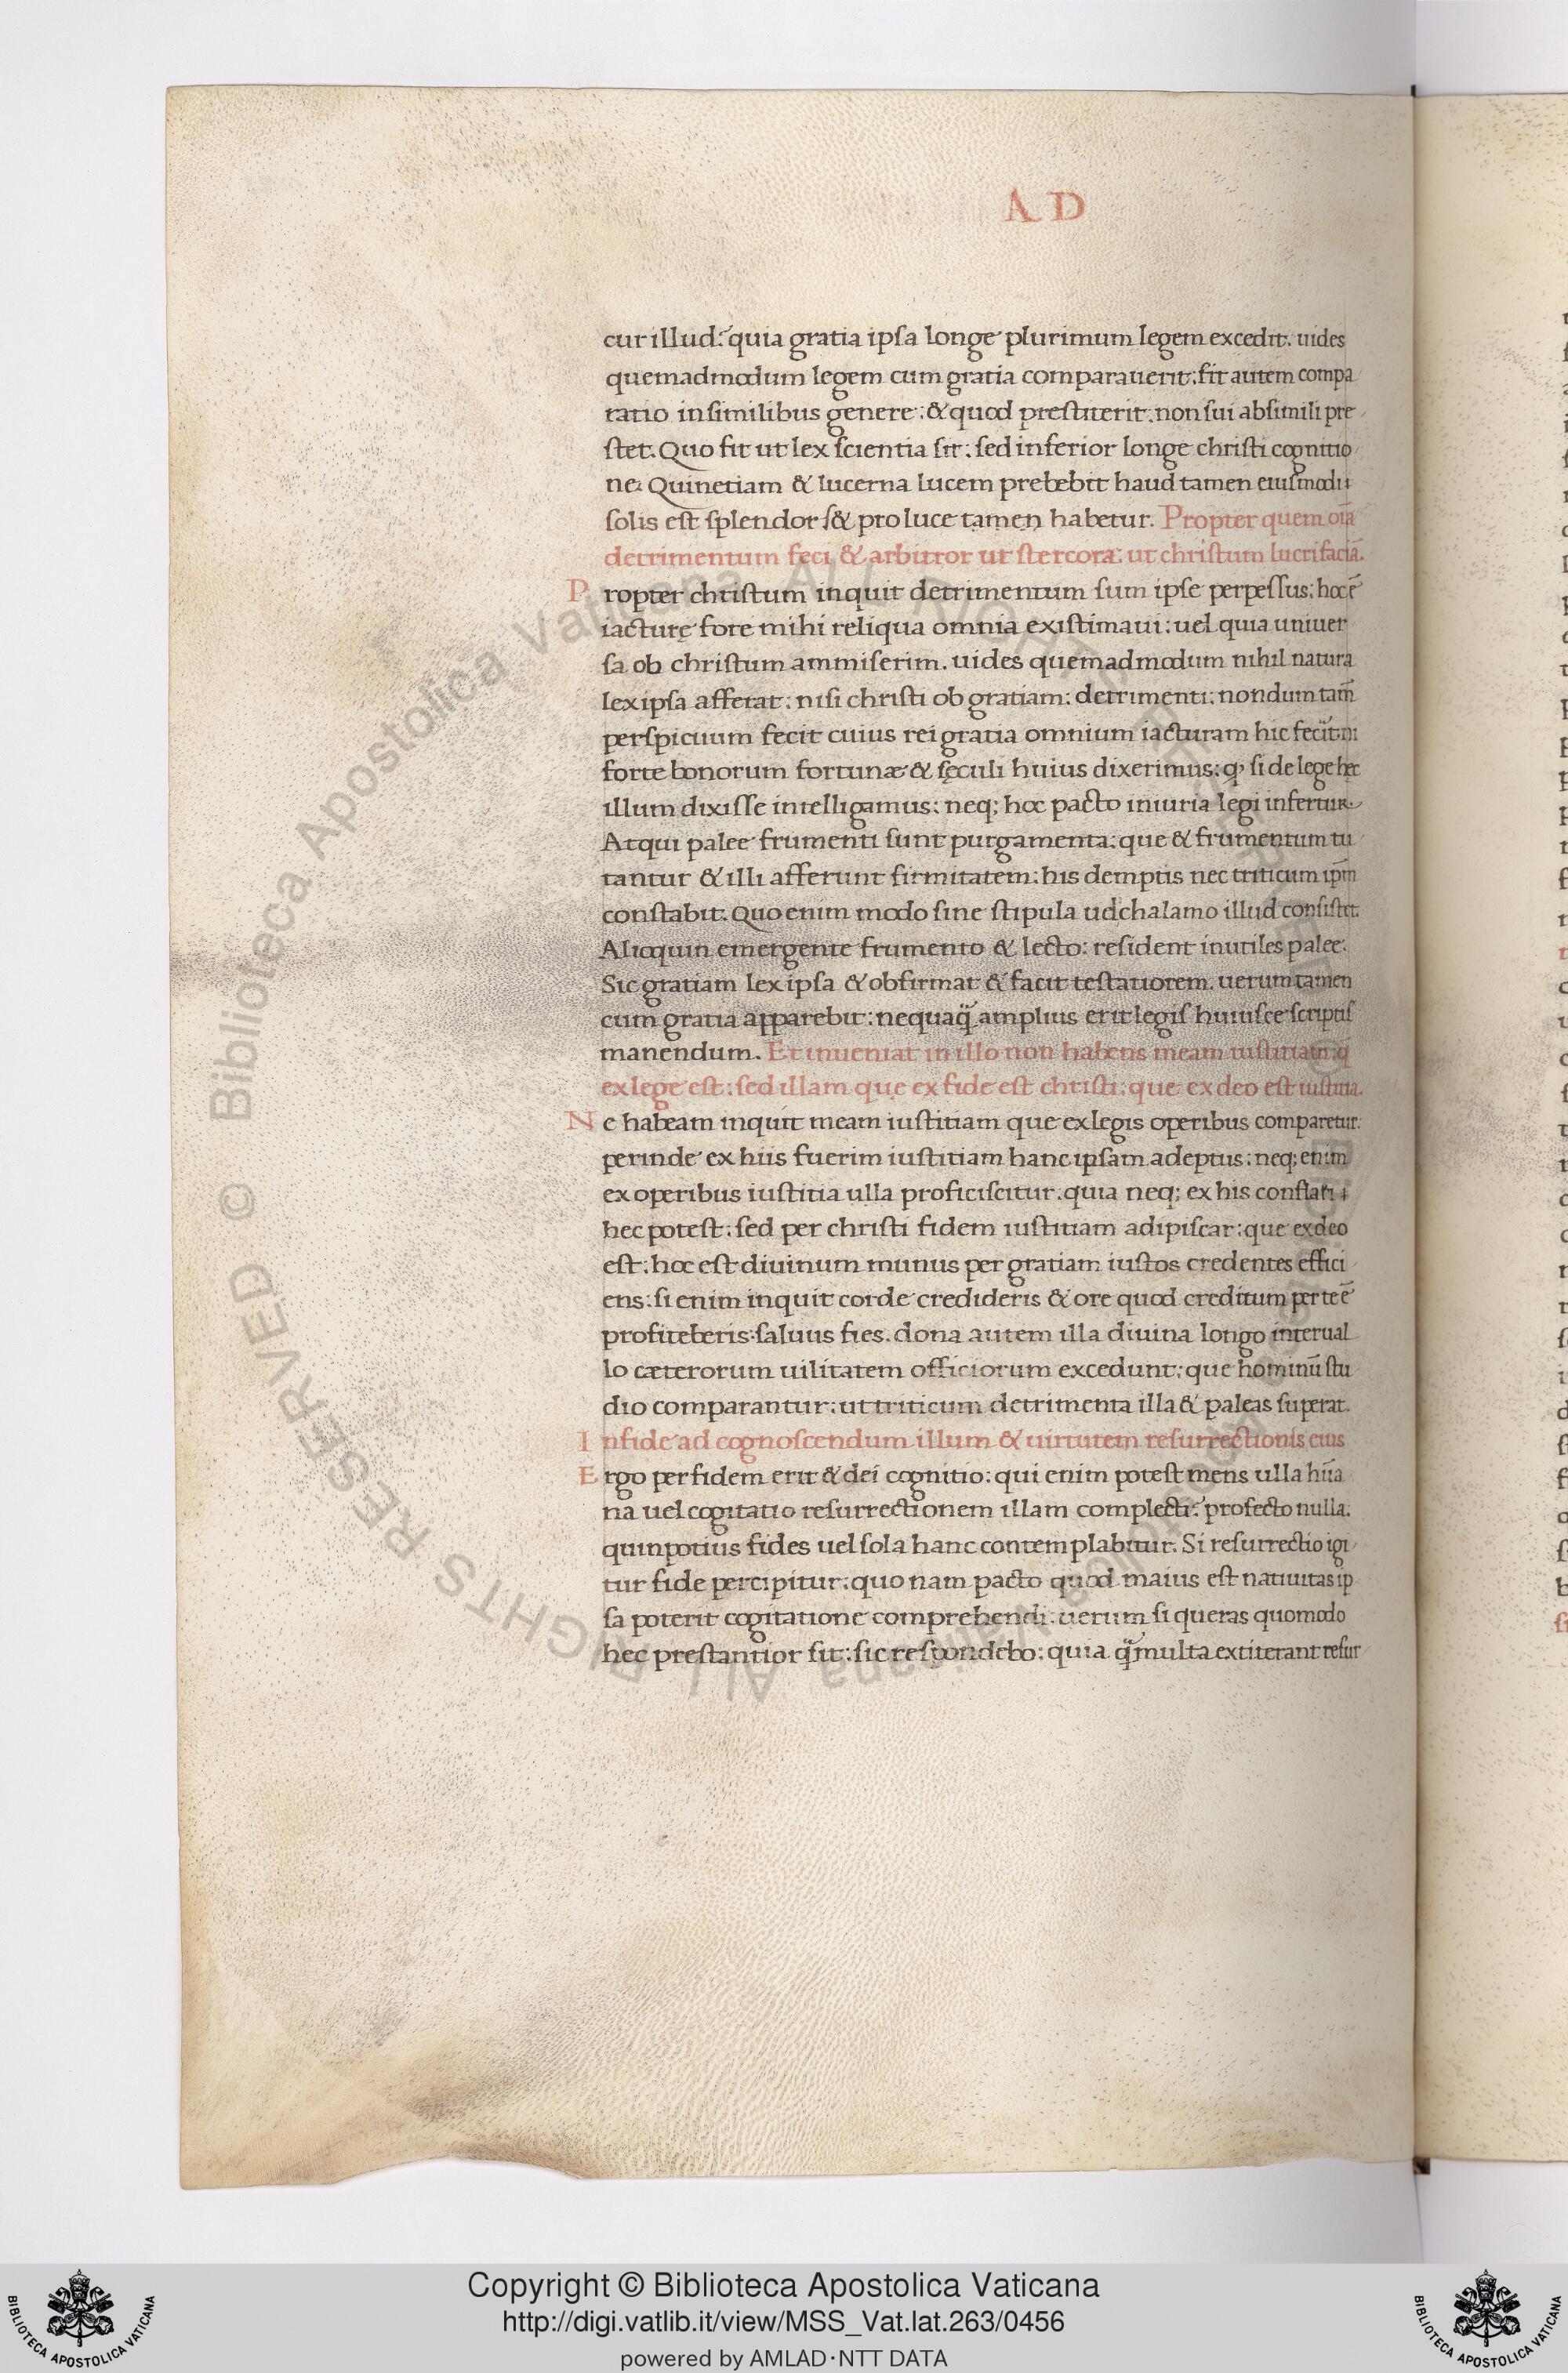 AD
cur illud? quia gratia ipsa longe plurimum legem excedit. uides
quemadmodum legem cum gratia comparauerit: fit autem compa
ratio in similibus genere: & quod prestiterit: non sui absimili pre
stet. Quo fit ut lex scientia sit: sed inferior longe christi cognitio
ne. Quinetiam & lucerna lucem prebebit haud tamen eiusmodi
solis est splendor s& pro luce tamen habetur. Propter quem oīa
detrimentum feci & arbitror ut stercora: ut christum lucrifaciā.
Propter christum inquit detrimentum sum ipse perpessus: hoc ē
iacturę fore mihi reliqua omnia existimaui: uel quia uniuer
sa ob christum ammiserim. uides quemadmodum nihil natura
lex ipsa afferat: nisi christi ob gratiam: detrimenti: nondum tam̄
perspicuum fecit cuius rei gratia omnium iacturam hic fecit: ni
forte bonorum fortunæ & sęculi huius dixerimus: q si de lege hec
illum dixisse intelligamus: neq; hoc pacto iniuria legi infertur.
Atqui palee frumenti sunt purgamenta: que & frumentum tu
tantur & illi afferunt firmitatem: his demptis nec triticum ipm̄
constabit. Quo enim modo sine stipula ud chalamo illud consistet.
Alioquin emergente frumento & lecto: resident inutiles palee.
Sic gratiam lex ipsa & obfirmat & facit testatiorem. uerum tamen
cum gratia apparebit: nequaq̄ amplius erit legis huiusce scriptis
manendum. Et inueniat in illo non habens meam iustitiam: q̄
ex lege est: sed illam que ex fide est christi: que ex deo est iustitia.
Ne habeam inquit meam iustitiam que ex legis operibus comparetur.
perinde ex hiis fuerim iustitiam hanc ipsam adeptus: neq; enim
ex operibus iustitia ulla proficiscitur. quia neq; ex his conflari
hec potest: sed per christi fidem iustitiam adipiscar: que ex deo
est: hoc est diuinum munus per gratiam iustos credentes effici
ens: si enim inquit corde credideris & ore quod creditum per te ē
profiteberis: saluus fies. dona autem illa diuina longo interual
lo cæterorum uilitatem officiorum excedunt: que hominū stu
dio comparantur: ut triticum detrimenta illa & paleas superat.
In fide ad cognoscendum illum & uirtutem resurrectionis eius
Ergo per fidem erit & dei cognitio: qui enim potest mens ulla hūa
na uel cogitatio resurrectionem illam complecti? profecto nulla.
quin potius fides uel sola hanc contemplabitur. Si resurrectio igi
tur fide percipitur: quo nam pacto quod maius est natiuitas ip
sa poterit cogitatione comprehendi: uerum si queras quomodo
hec prestantior sit: sic respondebo: quia q̄ multa extiterant resur
© Biblioteca Apostolica Vaticana ALL RIGHTS RESERVED
Copyright © Biblioteca Apostolica Vaticana
http://digi.vatlib.it/view/MSS_Vat.lat.263/0456
powered by AMLAD·NTT DATA
BIBLIOTECA APOSTOLICA VATICANA
BIBLIOTECA APOSTOLICA VATICANA